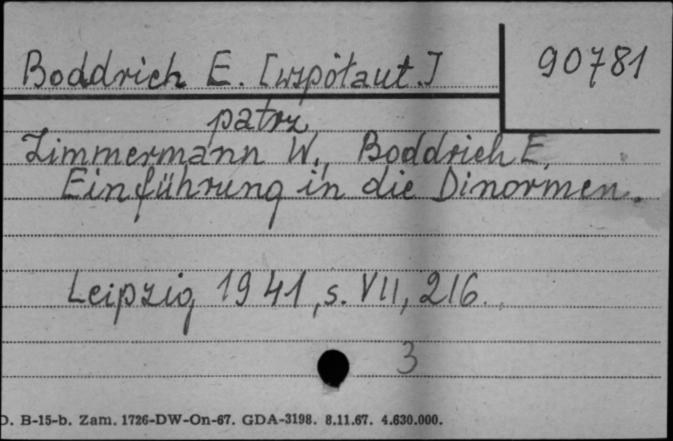 Boddrich E. [współaut.]
90781
patrz
Zimmermann W., Boddrich E.
Einführung in die Dinormen.
Leipzig 1941, s. VII, 216.
3
D. B-15-b. Zam. 1726-DW-On-67. GDA-3198. 8.11.67. 4.630.000.